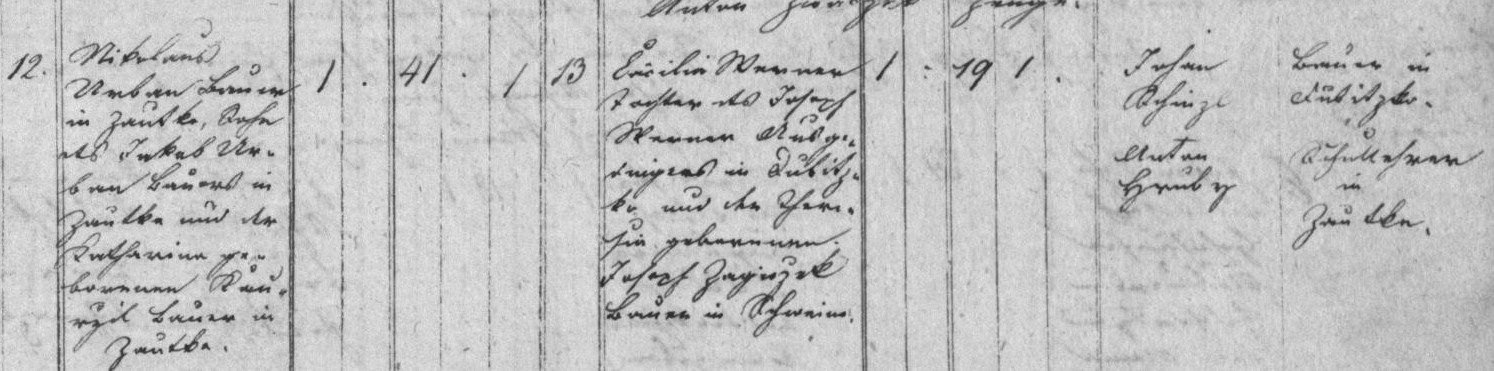 Anton
12.
Nikolaus
Urban Bauer
in Zautke, Sohn
des Jakob Ur-
ban Bauers in
Zautke und der
Katharina ge-
borenen
Bauer in
Zautke.
1 . 41 . 1
13
Cäcilia Werner
Tochter des Joseph
Werner Ausge-
dingers in Dubitz-
ko und der There-
sia geborenen
Joseph
Bauer in
1 . 19 1 .
Johan
Schinzl
Anton
Hruby
Bauer in
Dubitzko.
Schullehrer
in
Zautke.